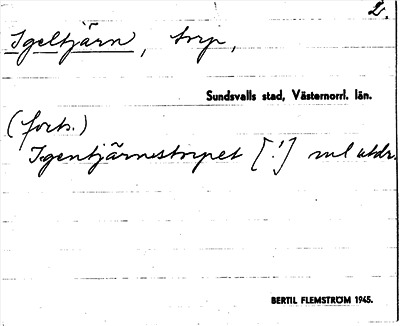 2.
Igeltjärn, torp,
Sundsvalls stad, Västernorrl. län.
(forts.)
Igentjärnstorpet [!] ml utdr.
BERTIL FLEMSTRÖM 1945.